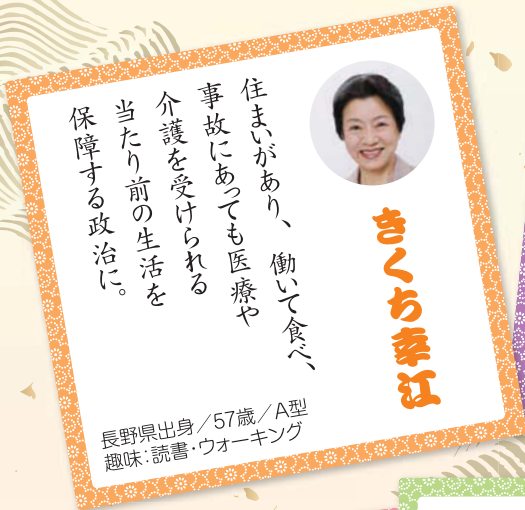 きくち幸江
住まいがあり、働いて食べ、
事故にあっても医療や
介護を受けられる
当たり前の生活を
保障する政治に。
長野県出身／57歳／A型
趣味：読書・ウォーキング